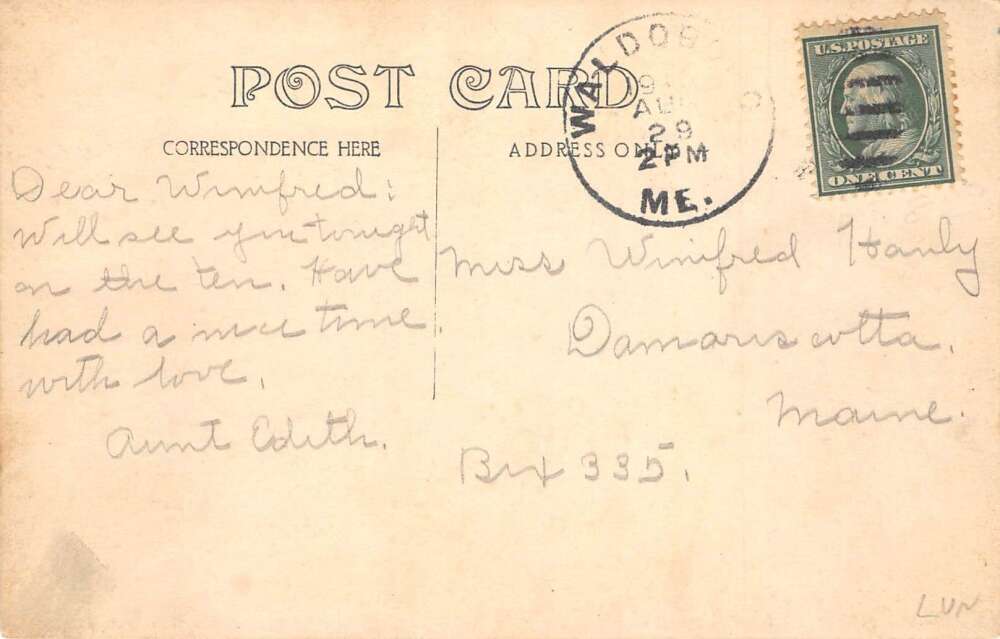 POST CARD
CORRESPONDENCE HERE
ADDRESS ONLY
WALDOBO
AU
29
2 PM
ME.
U.S. POSTAGE
ONE CENT
Dear Winifred:
Will see you tonight
on the ten. Have
had a nice time.
with love.
Aunt Edith.
Miss Winifred Hanly
Damariscotta.
Maine.
Box 335.
LUN